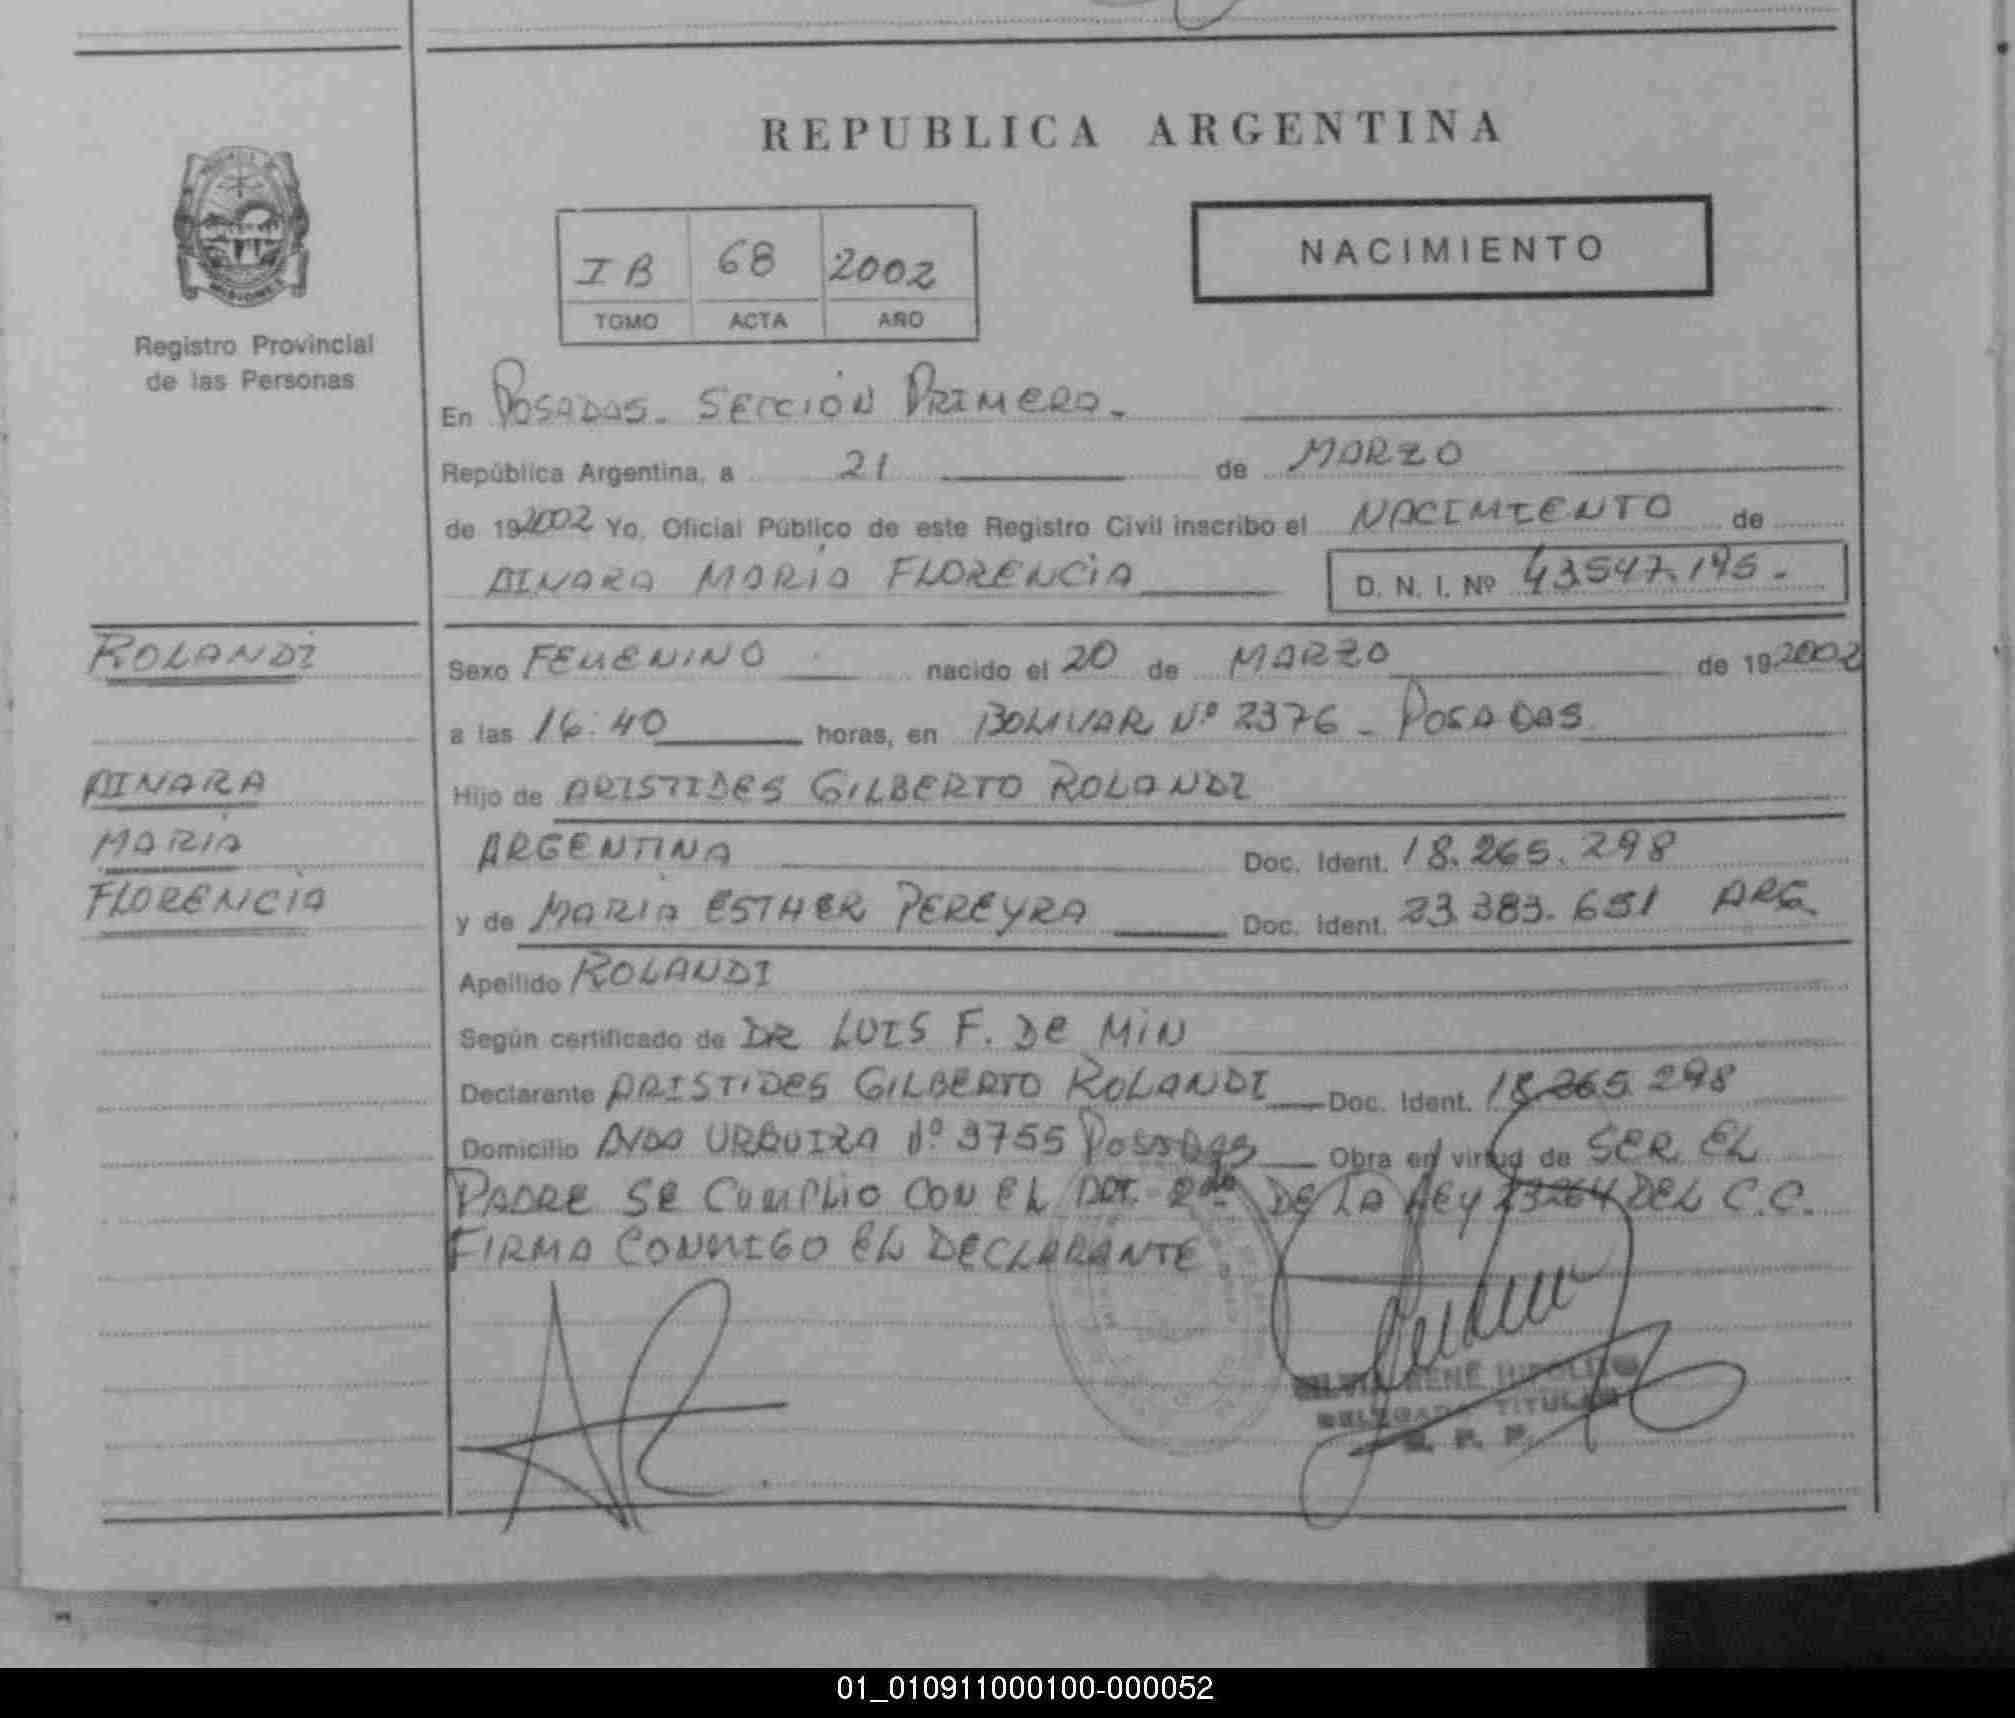 REPUBLICA ARGENTINA
NACIMIENTO
I B 68 2002
TOMO ACTA AÑO
Registro Provincial
de las Personas
En POSADAS. SECCIÓN PRIMERA.
República Argentina, a 21 de MARZO
de 192002 Yo, Oficial Público de este Registro Civil inscribo el NACIMIENTO de
AINARA MARÍA FLORENCIA D. N. I. Nº 43.547.195.-
ROLANDI
Sexo FEMENINO nacido el 20 de MARZO de 192002
a las 16:40 horas, en BOLIVAR Nº 2376 - POSADAS
AINARA
Hijo de ARISTIDES GILBERTO ROLANDI
MARÍA
ARGENTINA Doc. Ident. 18.265.298
FLORENCIA
y de MARÍA ESTHER PEREYRA Doc. Ident. 23.383.651 ARG.
Apellido ROLANDI
Según certificado de DR LUIS F. DE MIN
Declarante ARISTIDES GILBERTO ROLANDI Doc. Ident. 18.265.298
Domicilio AVDA URQUIZA Nº 3755 POSADAS Obra en virtud de SER EL
PADRE SE CUMPLIO CON EL ART. 2do DE LA LEY 23264 DEL C.C.
FIRMA CONMIGO EL DECLARANTE
RENÉ
TITULAR
R. P. P.
01_010911000100-000052